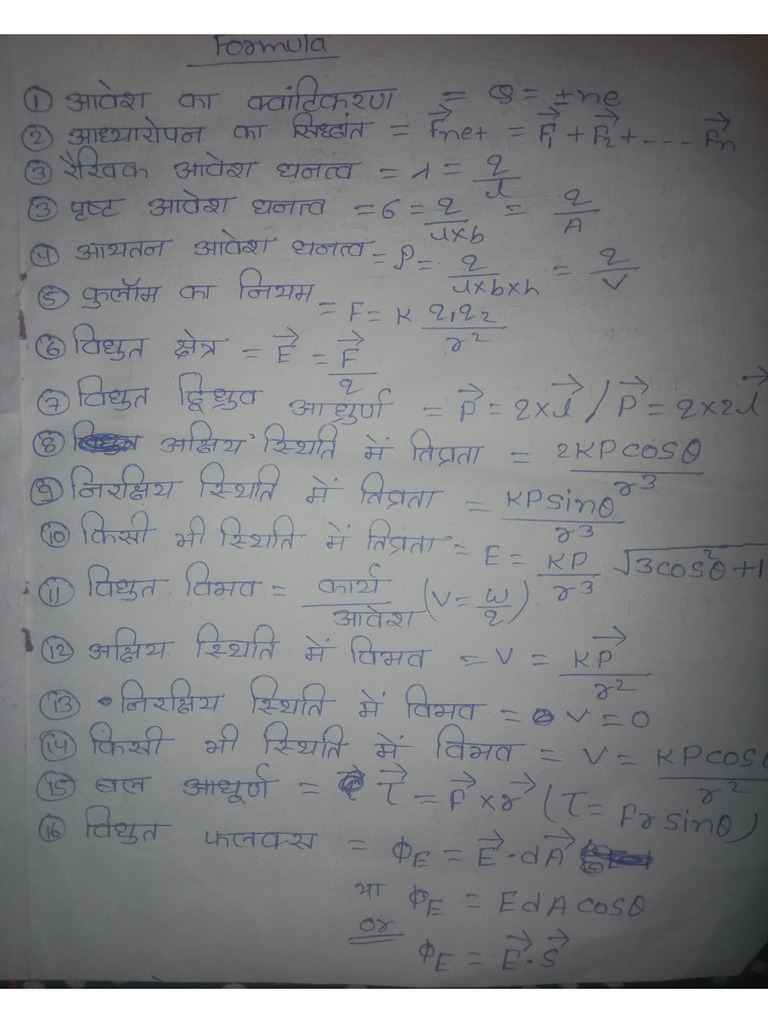 Formula
① आवेश का क्वांटिकरण = Q = ±ne
② आध्यारोपन का सिद्धांत = F⃗net = F⃗₁ + F⃗₂ + ---- F⃗n
③ रैखिक आवेश घनत्व = λ = q/l
③ पृष्ट आवेश घनत्व = σ = q/l×b = q/A
④ आयतन आवेश घनत्व = ρ = q/l×b×h = q/V
⑤ कुलॉम का नियम = F = K q₁q₂/r²
⑥ विधुत क्षेत्र = E⃗ = F⃗/q
⑦ विधुत द्विध्रुव आधुर्ण = P⃗ = q×l⃗ / P⃗ = q×2l⃗
⑧ अक्षिय स्थिति में तिव्रता = 2KPcosθ/r³
⑨ निरक्षिय स्थिति में तिव्रता = KPsinθ/r³
⑩ किसी भी स्थिति में तिव्रता = E = KP/r³ √3cos²θ+1
⑪ विधुत विभव = कार्य/आवेश (V = W/q)
⑫ अक्षिय स्थिति में विभव = V = KP⃗/r²
⑬ निरक्षिय स्थिति में विभव = V = 0
⑭ किसी भी स्थिति में विभव = V = KPcosθ/r²
⑮ बल आधूर्ण = τ⃗ = F⃗ × r⃗ (τ = Fr sinθ)
⑯ विधुत फलक्स = ϕE = E⃗ · dA⃗
या ϕE = EdAcosθ
or ϕE = E⃗ · S⃗